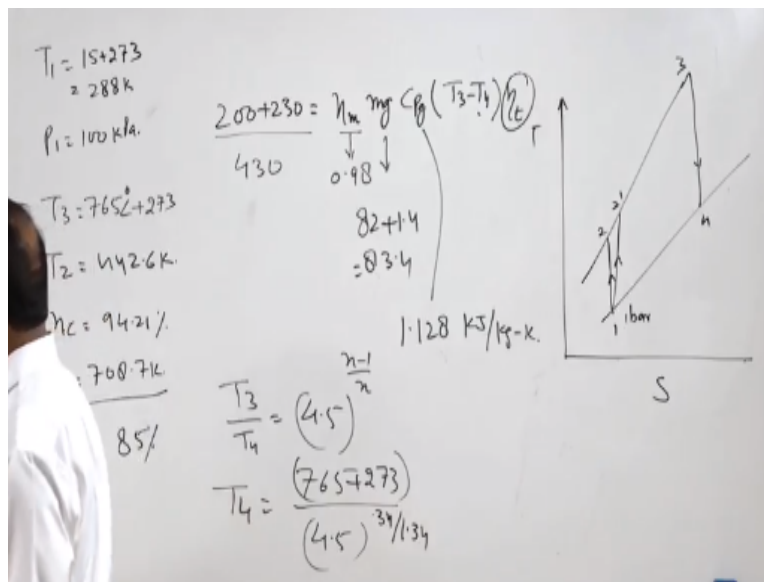 T1 = 15+273
= 288k
P1 = 100 kPa.
T3 = 765°C+273
T2 = 442.6K.
ηc = 94.21%
= 708.7K
85%
200+230 = ηm mg Cpg (T3-T4) ηt
430
0.98
82+1.4
= 83.4
1.128 KJ/kg-K.
T3/T4 = (4.5)^(n-1/n)
T4 = (765+273)/(4.5)^.34/1.34
T
3
2'
2
4
1
1bar
S